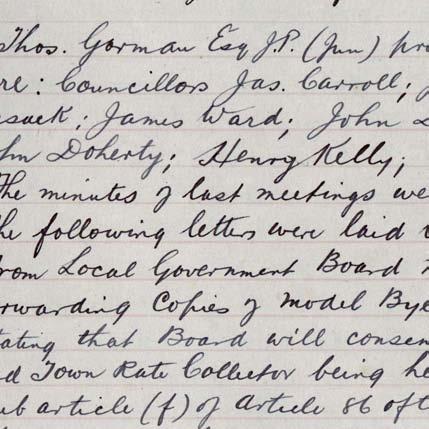 Thos. Gorman Esq J.P. (Jun) pr
re: Councillors Jas. Carroll;
James Ward; John
Doherty; Henry Kelly;
The minutes of last meetings we
he following letters were laid
from Local Government Board
rwarding Copies of Model Bye
tating that Board will consen
d Town Rate Collector being he
ub article (f) of Article 86 of t